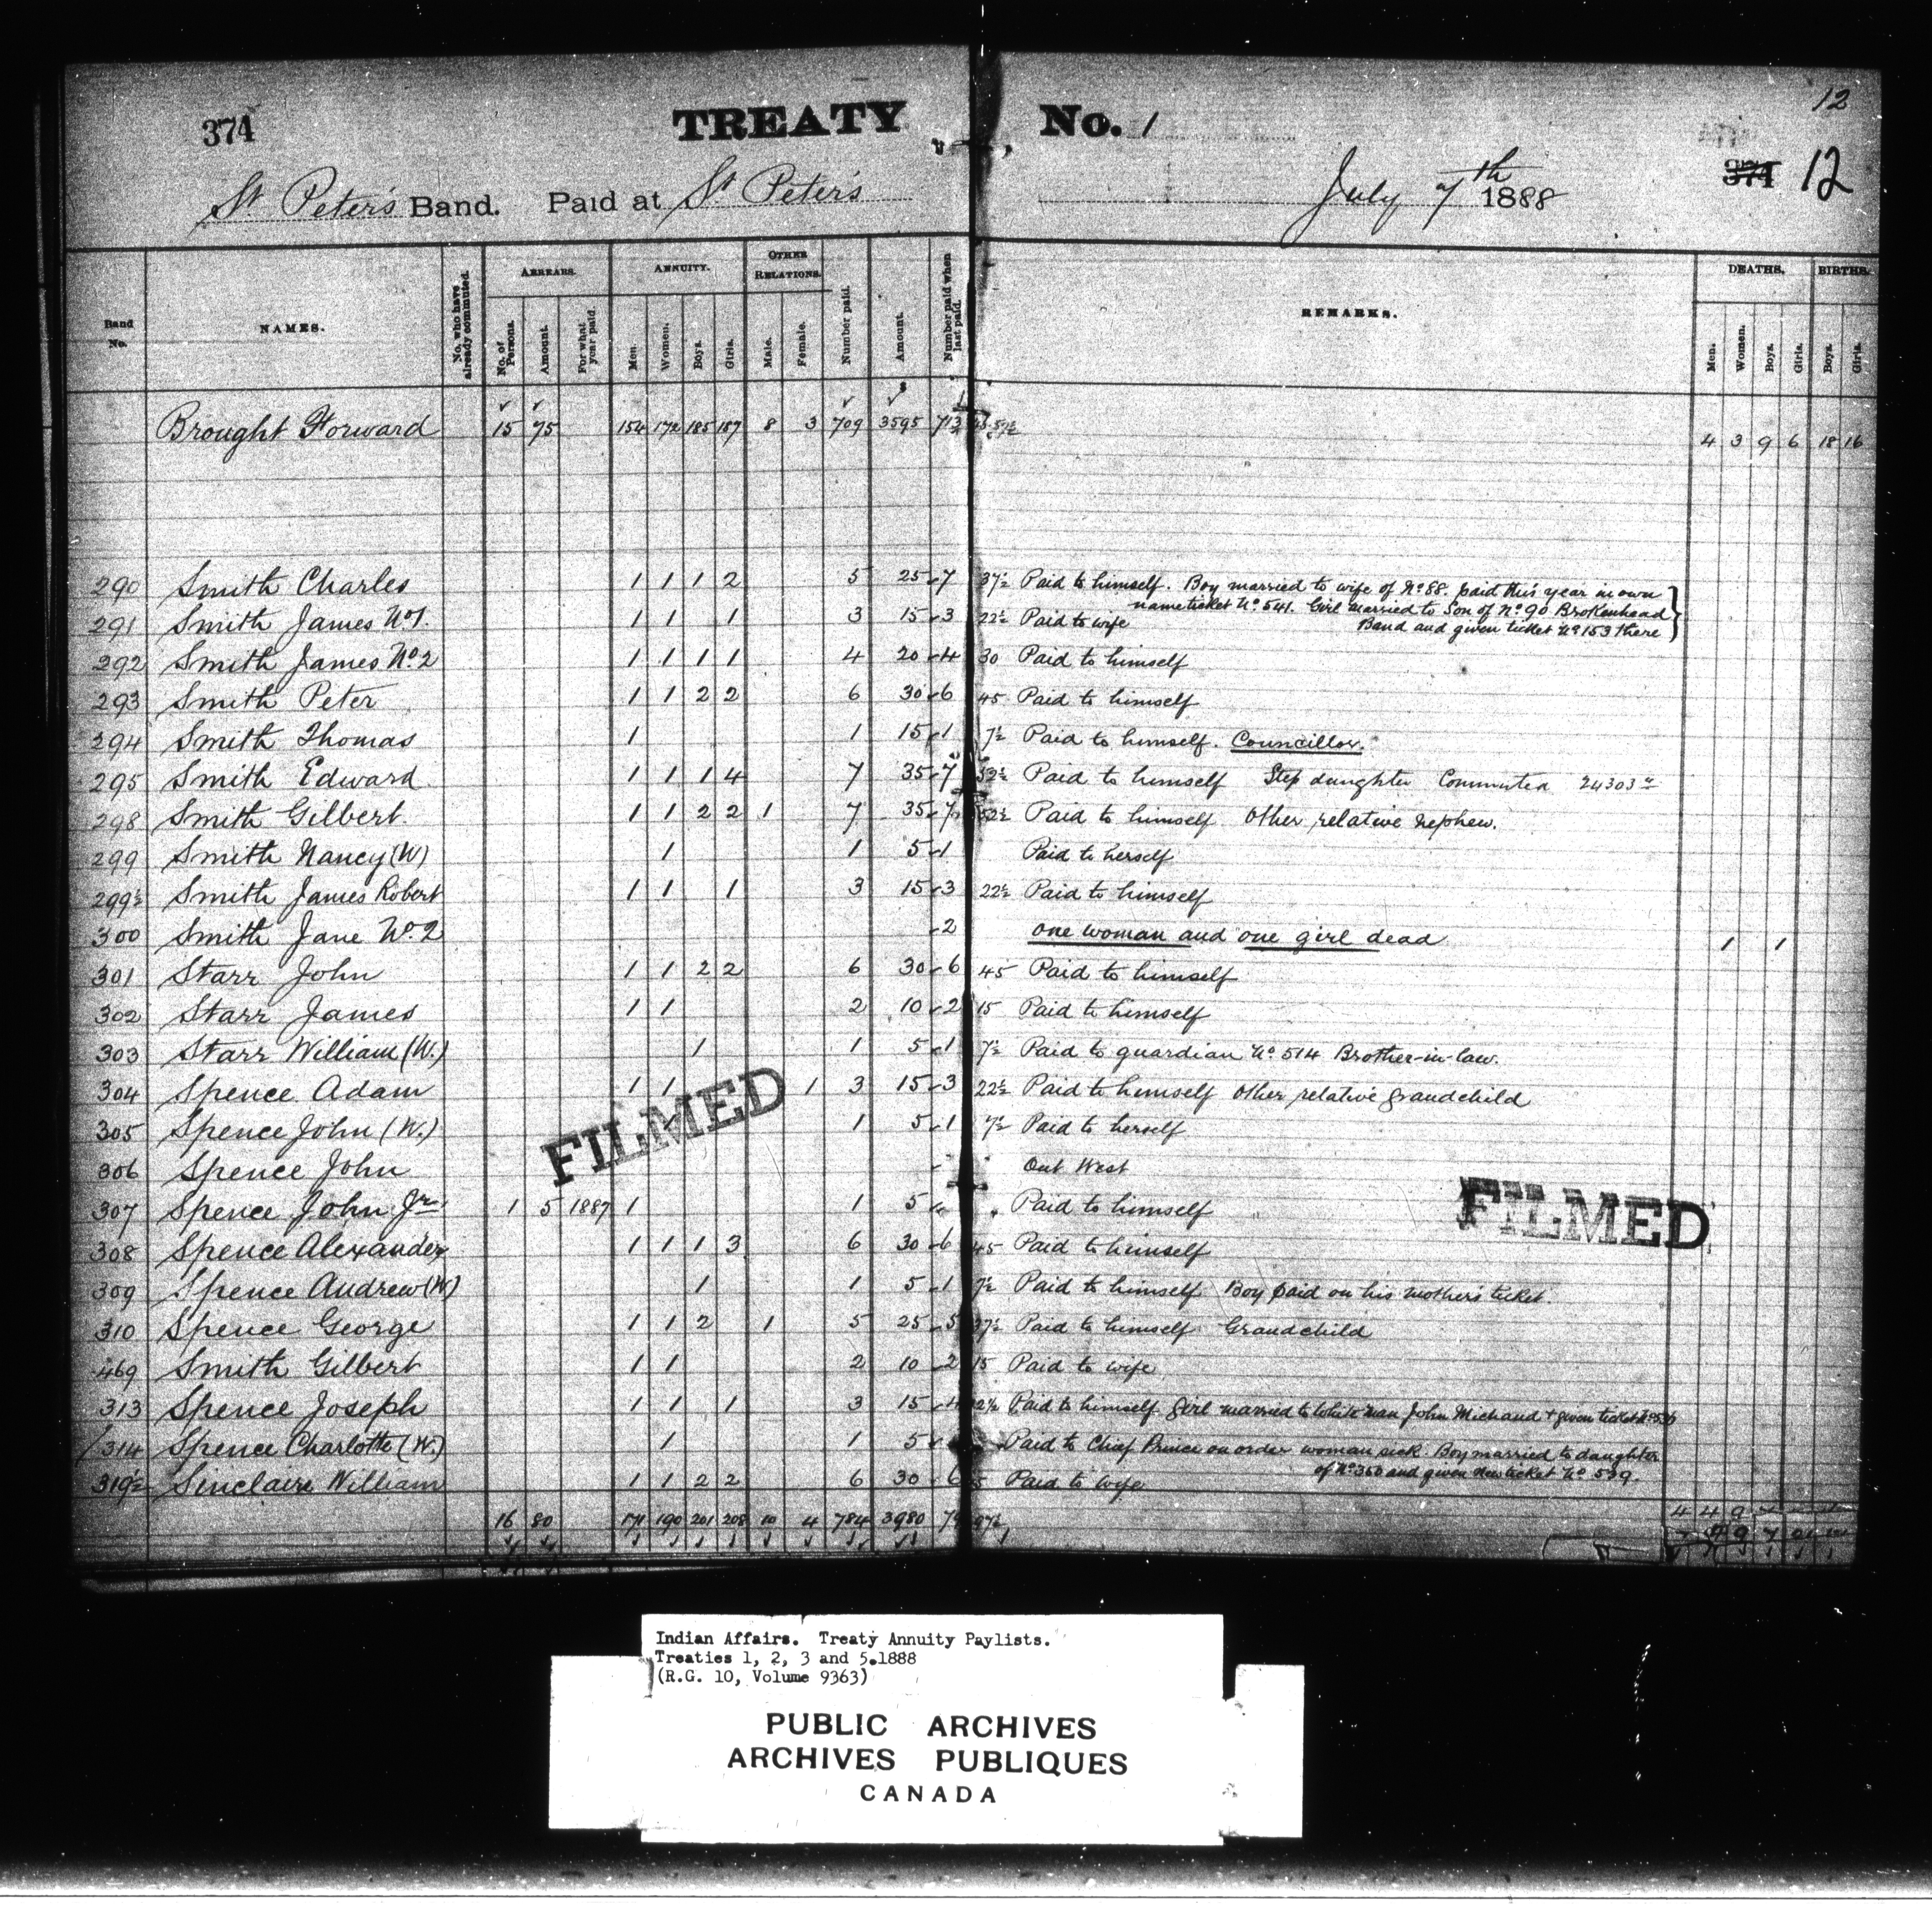 12
374 TREATY No. 1 374 12
St Peter's Band. Paid at St Peter's July 7th 1888
Band No. NAMES. No. who have already commuted. ARREARS. No. of Persons. Amount. For what year paid. ANNUITY. Men. Women. Boys. Girls. OTHER RELATIONS. Male. Female. Number paid. Amount. Number paid when last paid. REMARKS. DEATHS. Men. Women. Boys. Girls. BIRTHS. Boys. Girls.
$
Brought Forward 15 75 154 172 185 187 8 3 709 3595 713 4 3 9 6 18 16
290 Smith Charles 1 1 1 2 5 25 7 37½ Paid to himself. Boy married to wife of No 88. paid this year in own
name ticket No 541. Girl married to Son of No 90 Brokenhead
291 Smith James No 1. 1 1 1 3 15 3 22½ Paid to wife Band and given ticket No 153 there
292 Smith James No 2 1 1 1 1 4 20 4 30 Paid to himself
293 Smith Peter 1 1 2 2 6 30 6 45 Paid to himself
294 Smith Thomas 1 1 15 1 7½ Paid to himself. Councillor.
295 Smith Edward 1 1 1 4 7 35 7 52½ Paid to himself Step daughter Commuted 24303
298 Smith Gilbert 1 1 2 2 1 7 35 7 52½ Paid to himself Other relative nephew.
299 Smith Nancy (W) 1 1 5 1 Paid to herself
299½ Smith James Robert 1 1 1 3 15 3 22½ Paid to himself
300 Smith Jane No. 2 2 one woman and one girl dead 1 1
301 Starr John 1 1 2 2 6 30 6 45 Paid to himself
302 Starr James 1 1 2 10 2 15 Paid to himself
303 Starr William (W.) 1 1 5 1 7½ Paid to guardian No 514 Brother-in-law.
304 Spence Adam 1 1 1 3 15 3 22½ Paid to himself other relative grandchild
305 Spence John (W.) 1 5 1 7½ Paid to herself
FILMED
306 Spence John Out West
307 Spence John Jr 1 5 1887 1 1 5 Paid to himself
FILMED
308 Spence Alexander 1 1 1 3 6 30 6 45 Paid to himself
309 Spence Andrew (W) 1 1 5 1 7½ Paid to himself Boy paid on his mother's ticket.
310 Spence George 1 1 2 1 5 25 5 37½ Paid to himself Grandchild
469 Smith Gilbert 1 1 2 10 2 15 Paid to wife
313 Spence Joseph 1 1 1 3 15 4 Paid to himself. Girl married to White man John Michaud + given ticket
314 Spence Charlotte (W.) 1 1 5 Paid to Chief Prince on order woman sick. Boy married to daughter
of No 360 and given new ticket No 539.
319½ Sinclaire William 1 1 2 2 6 30 6 Paid to wife
16 80 171 190 201 208 10 4 784 3980
4 4 9 7
Indian Affairs. Treaty Annuity Paylists.
Treaties 1, 2, 3 and 5.1888
(R.G. 10, Volume 9363)
PUBLIC ARCHIVES
ARCHIVES PUBLIQUES
CANADA